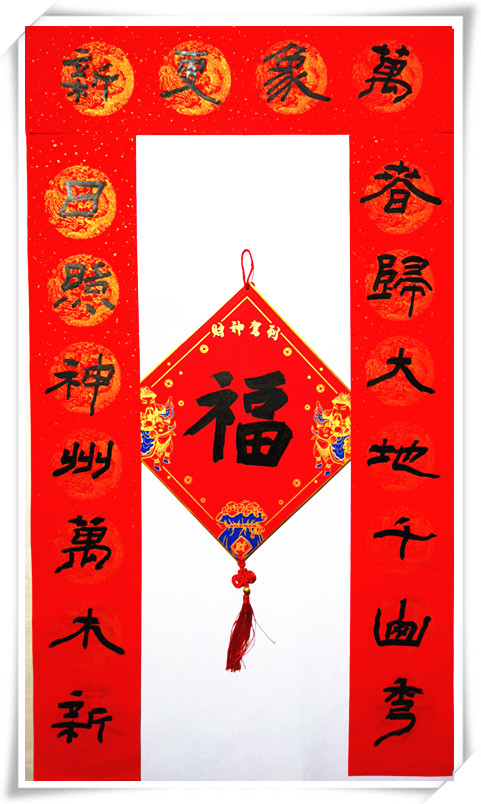 萬象更新
春歸大地千山秀
日照神州萬木新
财神驾到
福